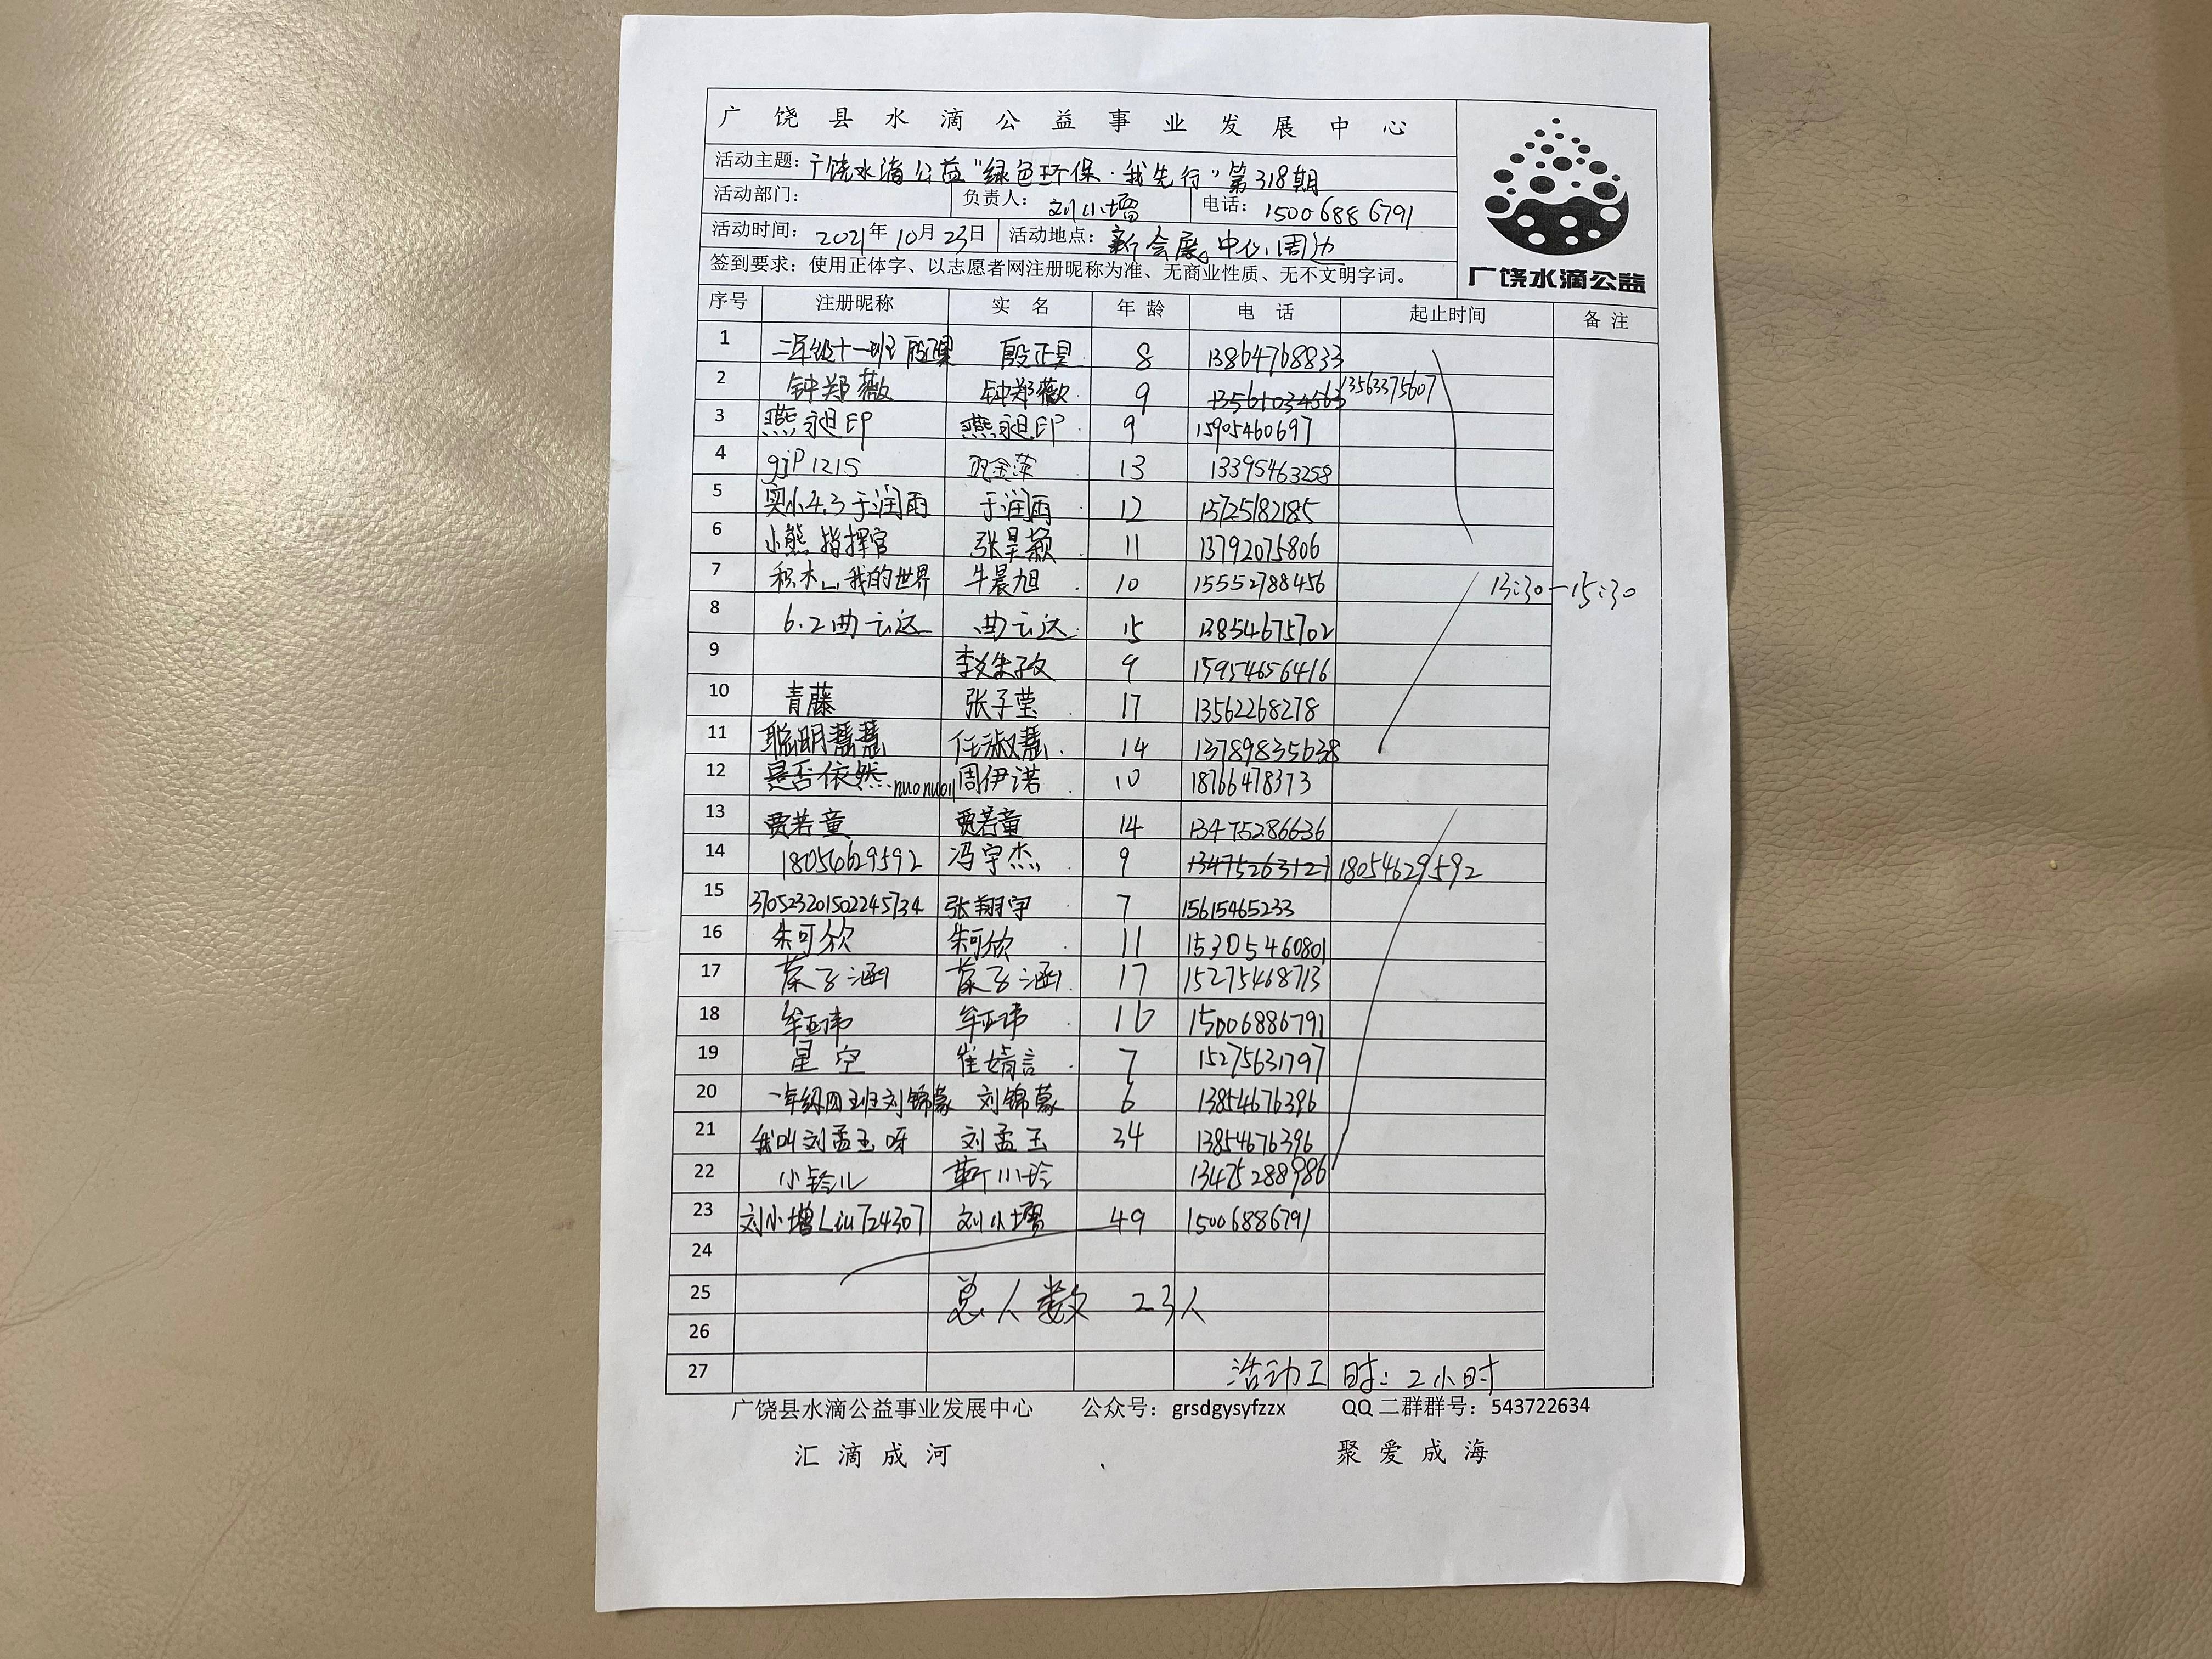 广饶县水滴公益事业发展中心
活动主题：广饶水滴公益"绿色环保·我先行"第318期
活动部门： 负责人：刘小增 电话：15006886791
活动时间：2021年10月23日 活动地点：新会展中心周边
签到要求：使用正体字、以志愿者网注册昵称为准、无商业性质、无不文明字词。
广饶水滴公益
序号 注册昵称 实名 年龄 电话 起止时间 备注
1 二年级十一班 殷正昊 殷正昊 8 13864768833
2 钟郑薇 钟郑薇 9 13561034563 13563375607
3 燕昶 燕昶 9 15905460697
4 gjp1215 巩金萍 13 13395463258
5 实小4.3于润雨 于润雨 12 13725182185
6 小熊指挥官 张昊颖 11 13792075806
7 积木乚我的世界 牛晨旭 10 15552788456
13:30-15:30
8 6.2曲云达 曲云达 15 13854675702
9 李 9 15954656416
10 青藤 张子莹 17 13562268278
11 聪明慧慧 任淑慧 14 13789835638
12 是否依然 nuonuo11 周伊诺 10 18766478373
13 贾若童 贾若童 14 13475286636
14 18054629592 冯宇杰 9 13475263121 18054629592
15 370523201502245734 张翔宇 7 15615465233
16 朱可欣 朱可欣 11 15305460801
17 子涵 子涵 17 15275468713
18 牟亚玮 牟亚玮 16 15006886791
19 星空 崔婧言 7 15275631797
20 一年级四班刘锦蒙 刘锦蒙 6 13854676396
21 我叫刘孟玉呀 刘孟玉 34 13854676396
22 小铃儿 靳小玲 13475288986
23 刘小增Liu724307 刘小增 49 15006886791
24
25 总人数 23人
26
27 活动工时：2小时
广饶县水滴公益事业发展中心 公众号：grsdgysyfzzx QQ二群群号：543722634
汇滴成河 聚爱成海